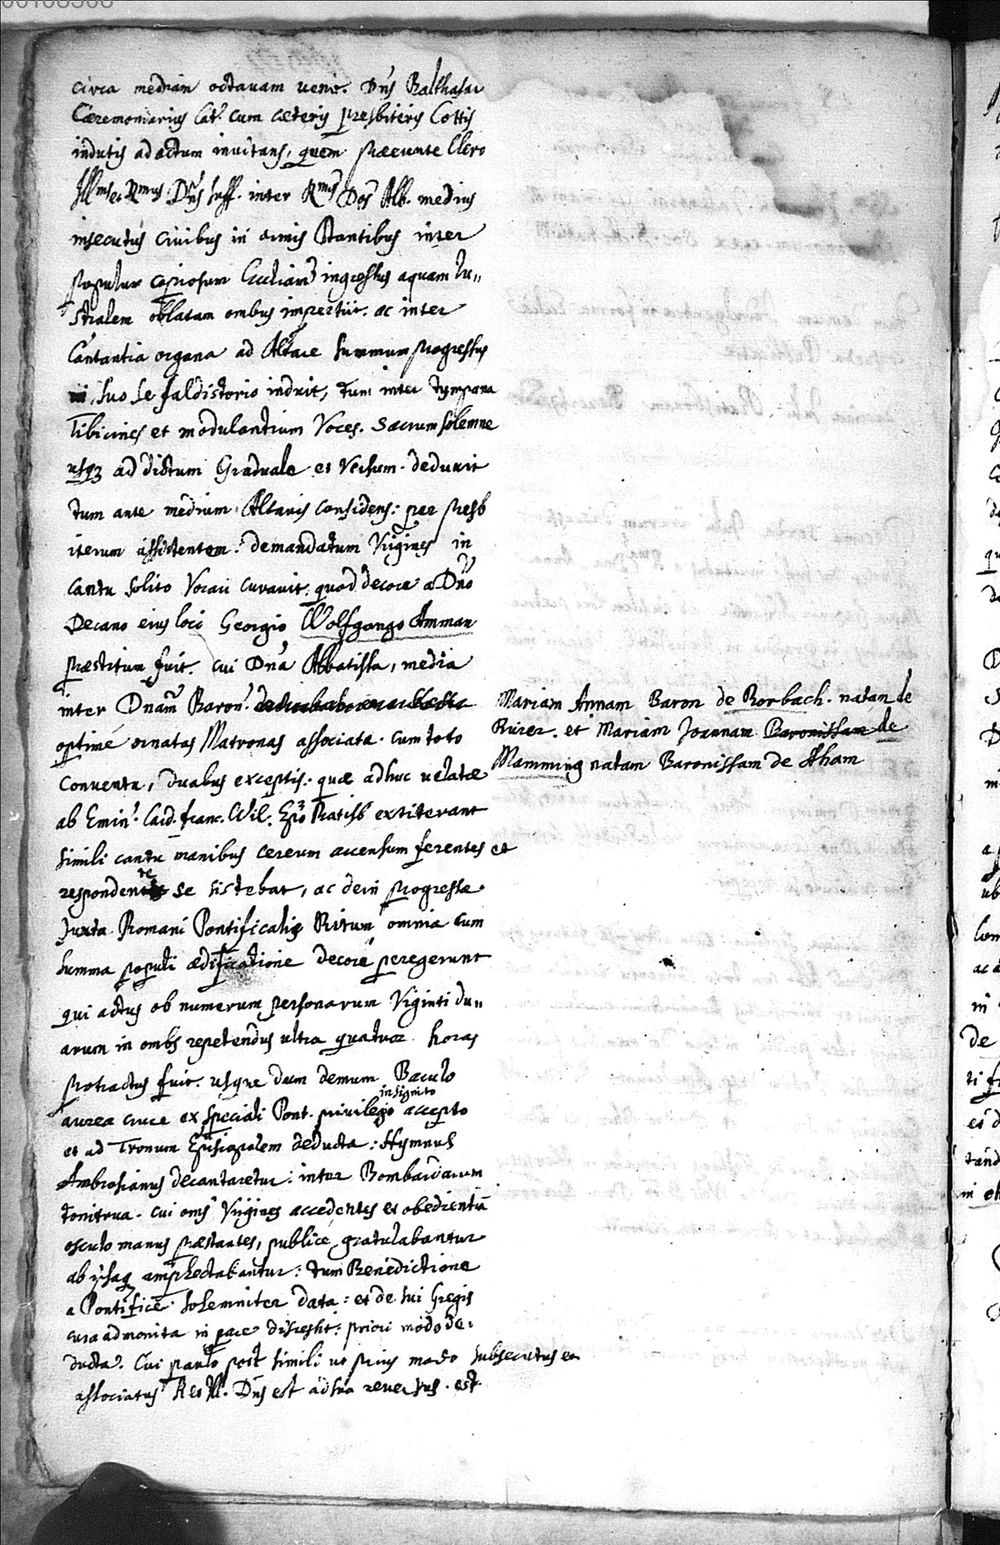 circa mediam octavam venit. Dn̄s Balthasar
Cæremoniarius Cath. cum cæteris presbiteris Cottis
indutis ad actum invitans, quem præeunte Clero
Illmus et Rmus Dn̄s Suff. inter Rmos Dōs Abb. medius
insecutus civibus in armis stantibus inter
populum copiosum Ecclesiam ingressus aquam lu„
stralem oblatam ombus impertiit. ac inter
Cantantia organa ad Altare summum progressus
suo se faldistorio induit, tum inter tympana
Tibicines et modulantium Voces. Sacrum solemne
usqz ad dictum Graduale et Versum. deduxit
tum ante medium Altaris considens: per presb
iterum assistentem. demandatum Virgines in
cantu solito vocari curavit. quod decore a Dn̄o
Decano eius loci Georgio Wolfgango Amman
præstitum fuit. cui Dn̄a Abbatissa, media
inter Dnam̄ Baron.
Mariam Annam Baron de Rorbach. natam de
optime ornatas Matronas associata. cum toto
Ruier. et Mariam Joannam Baronissam de
Conventu, duabus exceptis. quæ adhuc velatæ
Mamming natam Baronissam de Aham
ab Emin. Card. Franc. Wil. Epō Ratisb extiterant
simili cantu manibus cereum accensum ferentes et
respondente se sistebat, ac dein progressæ
Juxta Romani Pontificalis Ritum omnia cum
summa populi ædificatione decore peregerunt
qui actus ob numerum personarum Viginti du„
arum in ombs repetendus ultra quatuor horas
protractus fuit. usque dum demum Baculo
insignito
aurea cruce ex speciali Pont. privilegio accepto
et ad Tronum Episcopalem deducta: Hymnus
Ambrosianus decantaretur: inter Bombardarum
tonitrua. cui oms Virgines accedentes et obedientiā
osculo manus præstantes, publice gratulabantur
ab ipsaq amplectabantur: tum Benedictione
a Pontifice solemniter data: et de sui Gregis
cura admonita in pace discessit: priori modo de„
ducta. Cui paulo post simili ut prius modo subsecutus et
associatus R et Ill. Dn̄s est ad sua reversus. est.